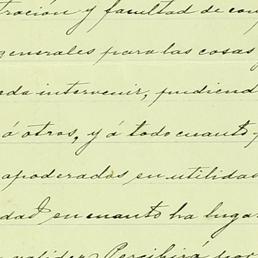 tración y facultad de con
generales para las cosas y
eda intervenir, pudiend
ó otros, y á todo cuanto
apoderados en utilidad
dad en cuanto ha luga
validez. Percibirá por